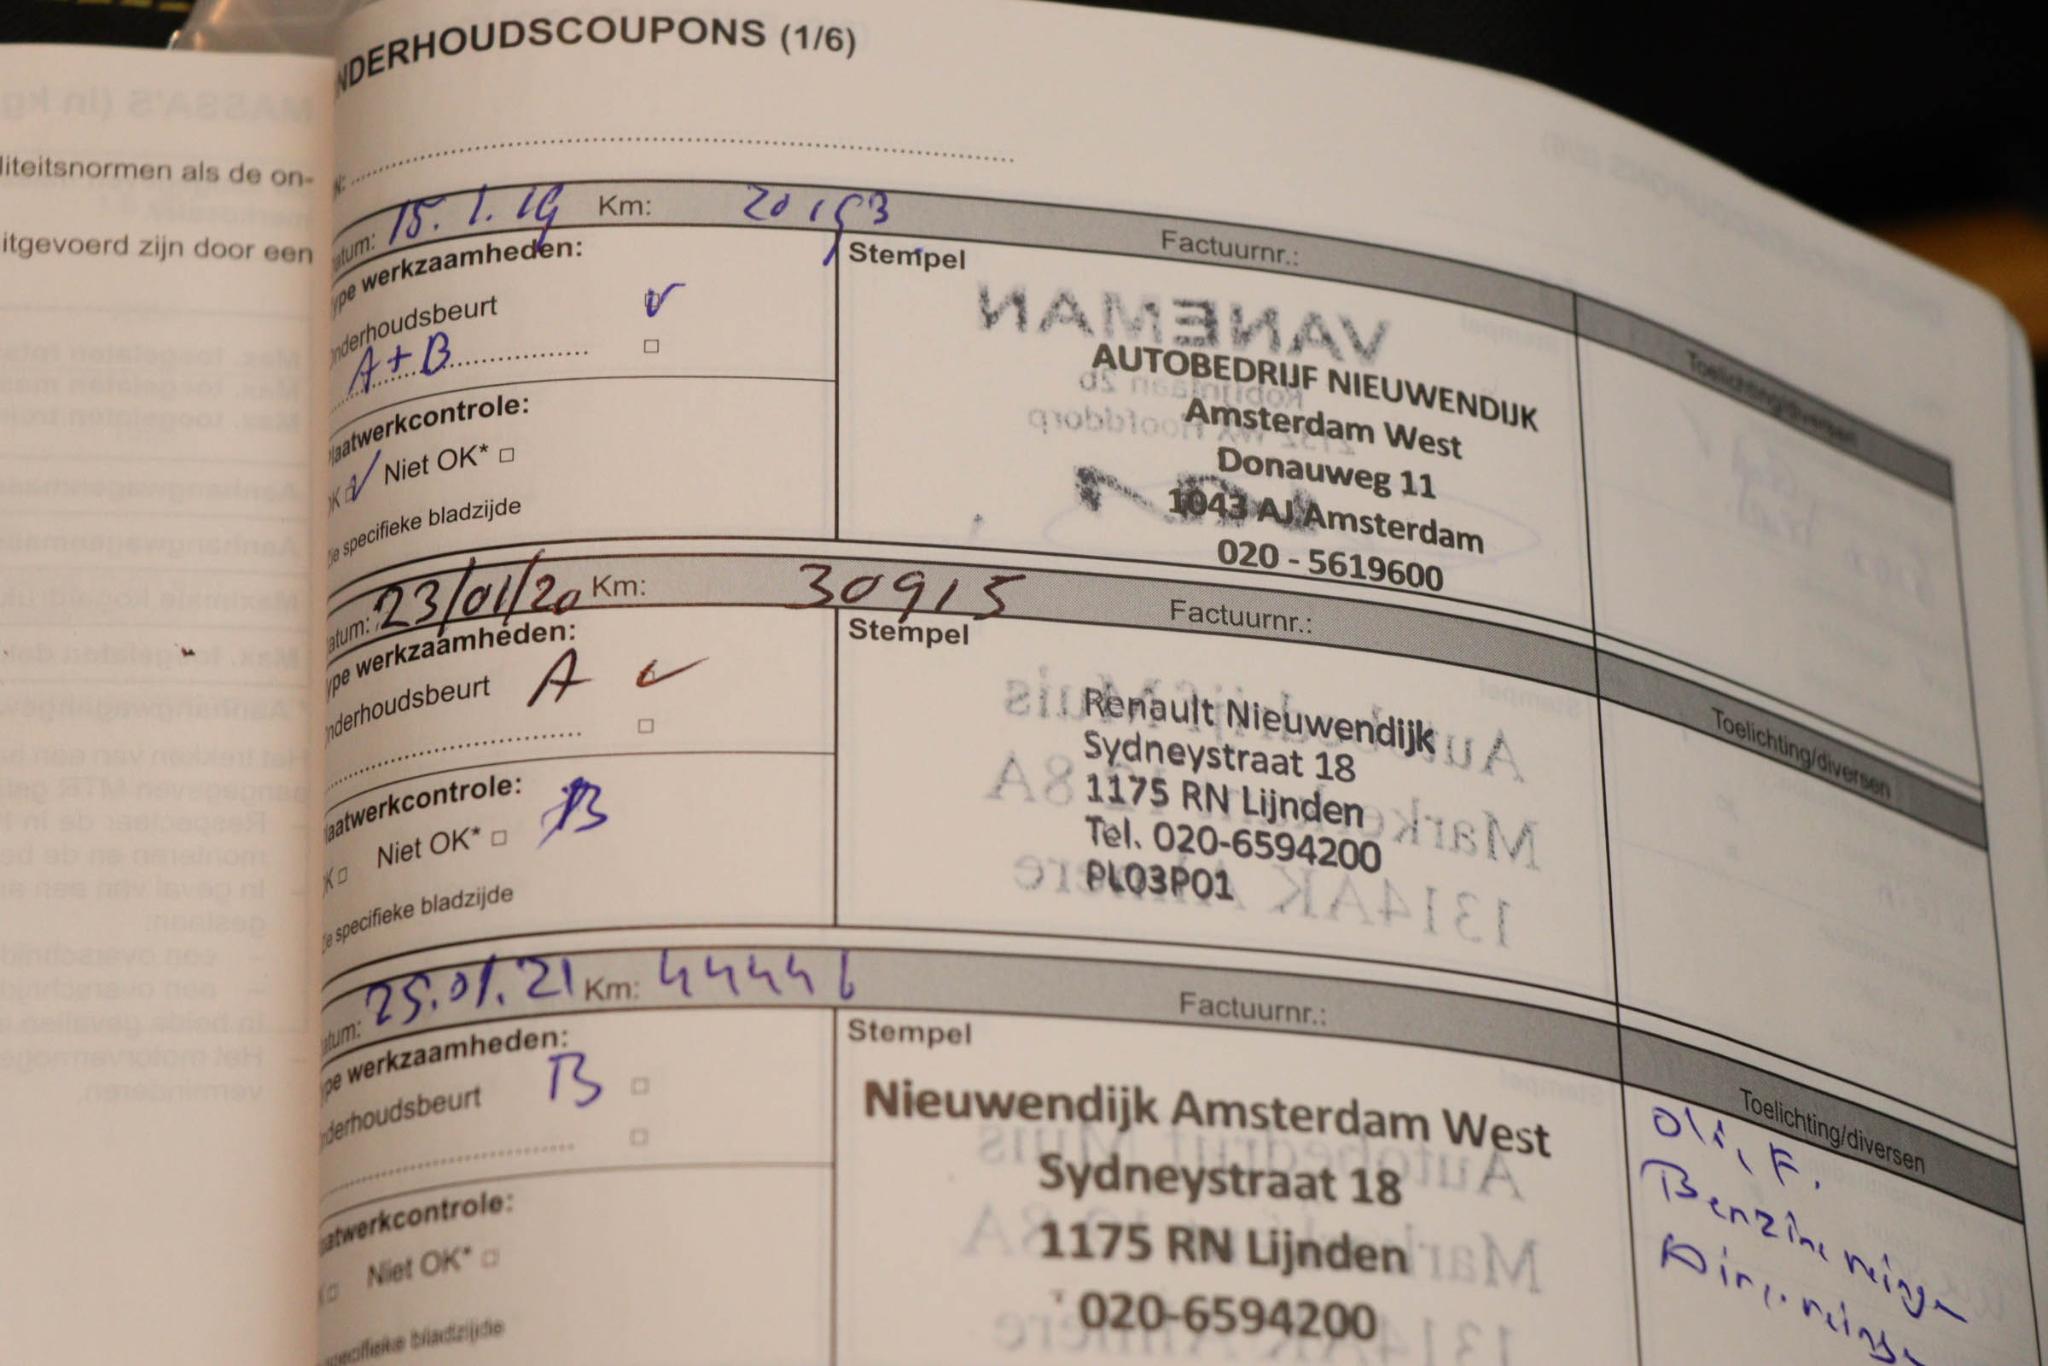 NDERHOUDSCOUPONS (1/6)
liteitsnormen als de on-
itgevoerd zijn door een
atum: 15.1.19 Km: 20193 Factuurnr.:
ype werkzaamheden:
Stempel
Toelichting/diversen
nderhoudsbeurt
A+B
laatwerkcontrole:
OK Niet OK*
ie specifieke bladzijde
VANEMAN
AUTOBEDRIJF NIEUWENDIJK
Amsterdam West
Donauweg 11
1043 AJ Amsterdam
020 - 5619600
atum: 23/01/20 Km: 30915 Factuurnr.:
ype werkzaamheden:
Stempel
Toelichting/diversen
nderhoudsbeurt A
laatwerkcontrole:
K Niet OK* B
ie specifieke bladzijde
Renault Nieuwendijk
Sydneystraat 18
1175 RN Lijnden
Tel. 020-6594200
PL03P01
Autobedrijf Muis
Markerkant 12 8A
1314AK Almere
atum: 25.01.21 Km: 44446 Factuurnr.:
ype werkzaamheden:
Stempel
Toelichting/diversen
nderhoudsbeurt B
aatwerkcontrole:
Niet OK*
specifieke bladzijde
Nieuwendijk Amsterdam West
Sydneystraat 18
1175 RN Lijnden
020-6594200
Oli, F.
Benzine reinige
Airco reinige